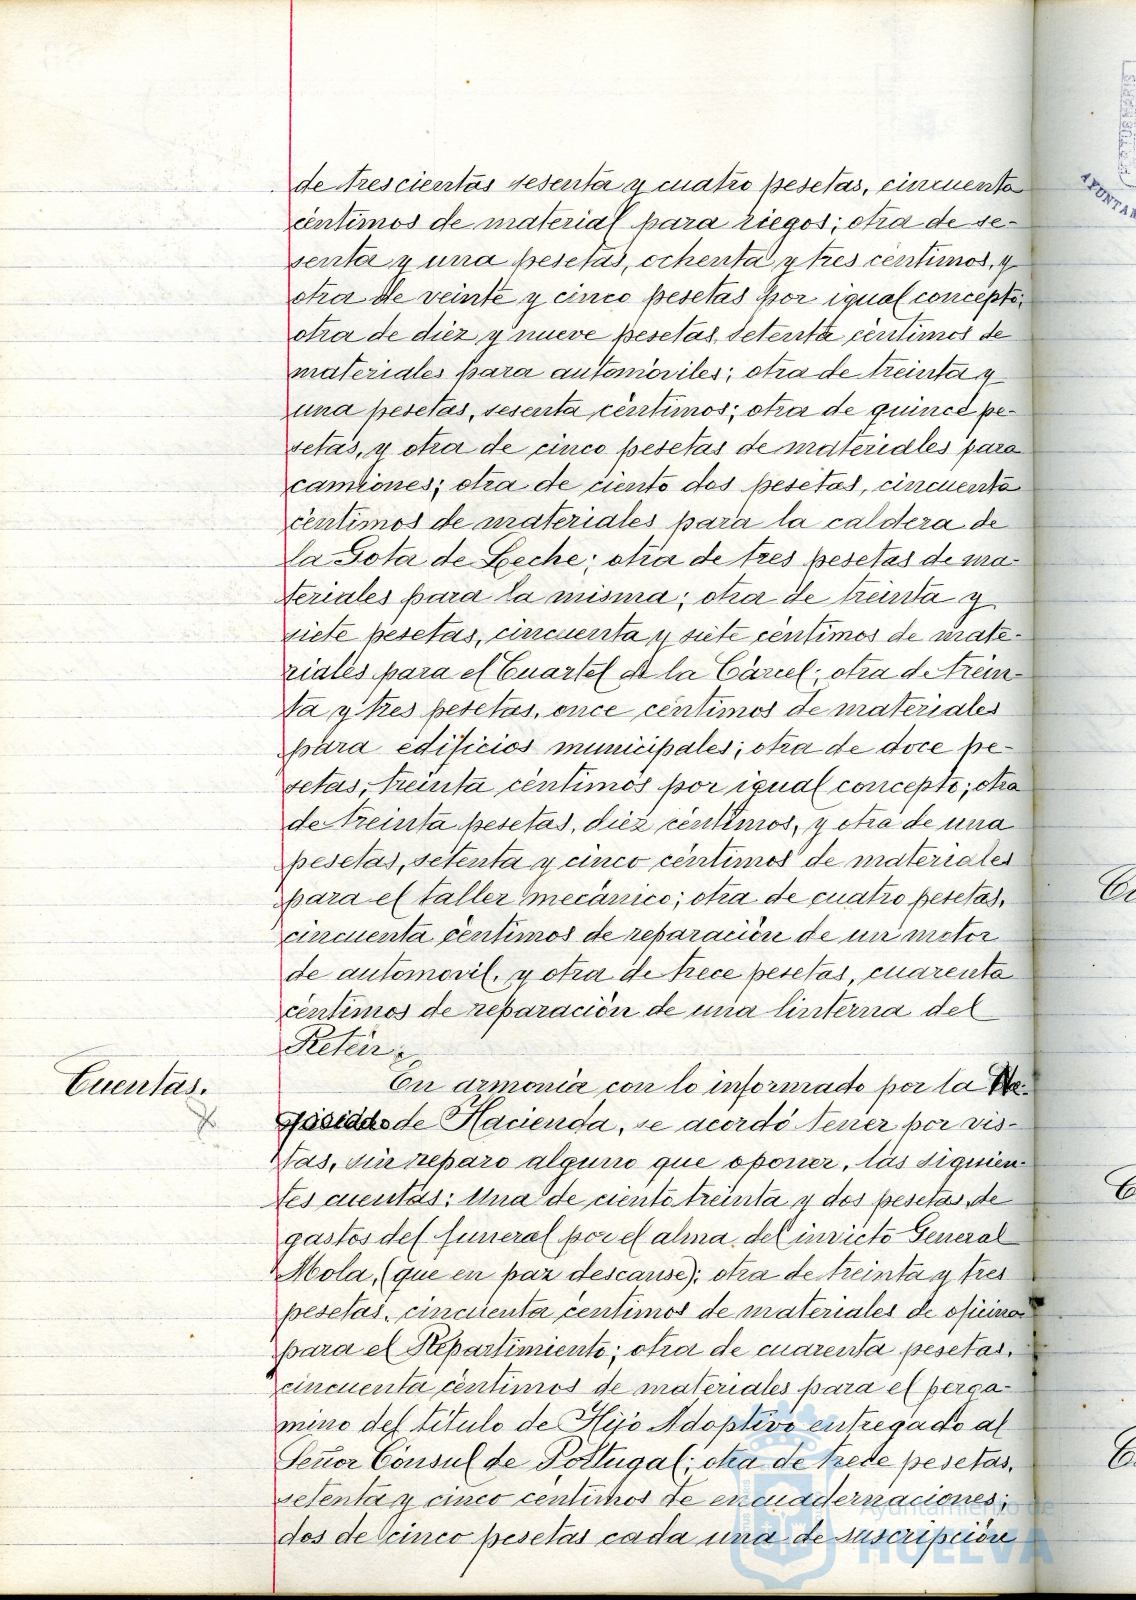 de trescientas sesenta y cuatro pesetas, cincuenta
céntimos de material para riegos; otra de se-
senta y una pesetas, ochenta y tres céntimos, y
otra de veinte y cinco pesetas por igual concepto;
otra de diez y nueve pesetas, setenta céntimos de
materiales para automóviles; otra de treinta y
una pesetas, sesenta céntimos; otra de quince pe-
setas, y otra de cinco pesetas de materiales para
camiones; otra de ciento dos pesetas, cincuenta
céntimos de materiales para la caldera de
la Gota de Leche; otra de tres pesetas de ma-
teriales para la misma; otra de treinta y
siete pesetas, cincuenta y siete céntimos de mate-
riales para el Cuartel de la Cárcel; otra de trein-
ta y tres pesetas, once céntimos de materiales
para edificios municipales; otra de doce pe-
setas, treinta céntimos por igual concepto; otra
de treinta pesetas, diez céntimos, y otra de una
pesetas, setenta y cinco céntimos de materiales
para el taller mecánico; otra de cuatro pesetas,
cincuenta céntimos de reparación de un motor
de automovil, y otra de trece pesetas, cuarenta
céntimos de reparación de una linterna del
Retén.
Cuentas.
En armonía con lo informado por la
de Hacienda, se acordó tener por vis-
tas, sin reparo alguno que oponer, las siguien-
tes cuentas: Una de ciento treinta y dos pesetas, de
gastos del funeral por el alma del invicto General
Mola, (que en paz descanse); otra de treinta y tres
pesetas, cincuenta céntimos de materiales de oficina
para el Repartimiento; otra de cuarenta pesetas,
cincuenta céntimos de materiales para el perga-
mino del título de Hijo Adoptivo entregado al
Señor Cónsul de Portugal; otra de trece pesetas,
setenta y cinco céntimos de encuadernaciones;
dos de cinco pesetas cada una de suscripción
Ayuntamiento de
HUELVA